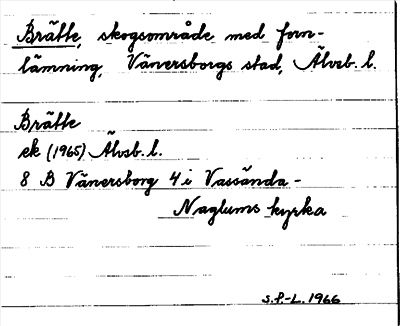 Brätte, skogsområde med forn-
lämning, Vänersborgs stad, Älvsb. l.
Brätte
ek (1965) Älvsb. l.
8 B Vänersborg 4 i Vassända -
Naglums kyrka
S.F.-L. 1966